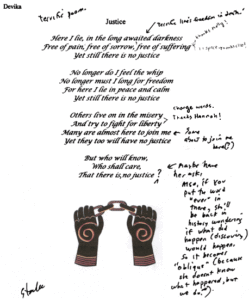 Devika
"terrific poem."
Justice
"terrific line: freedom in death."
Here I lie, in the long awaited darkness
Free of pain, free of sorrow, free of suffering
Yet still there is no justice
No longer do I feel the whip
No longer must I long for freedom
For here I lie in peace and calm
Yet still there is no justice
change words.
Thanks Hannah!
Others live on in the misery
And try to fight for liberty
Many are almost here to join me
Yet they too will have no justice
about to join me
But who will know,
Who shall care,
That there is no justice ?
Maybe have
her ask,
if you
put the word
"ever" in
there, she'll
be
history wondering
if what did
happen (discovering)
would happen.
So it becomes
"oblique" (because
she doesn't know
what happened, but
we do).